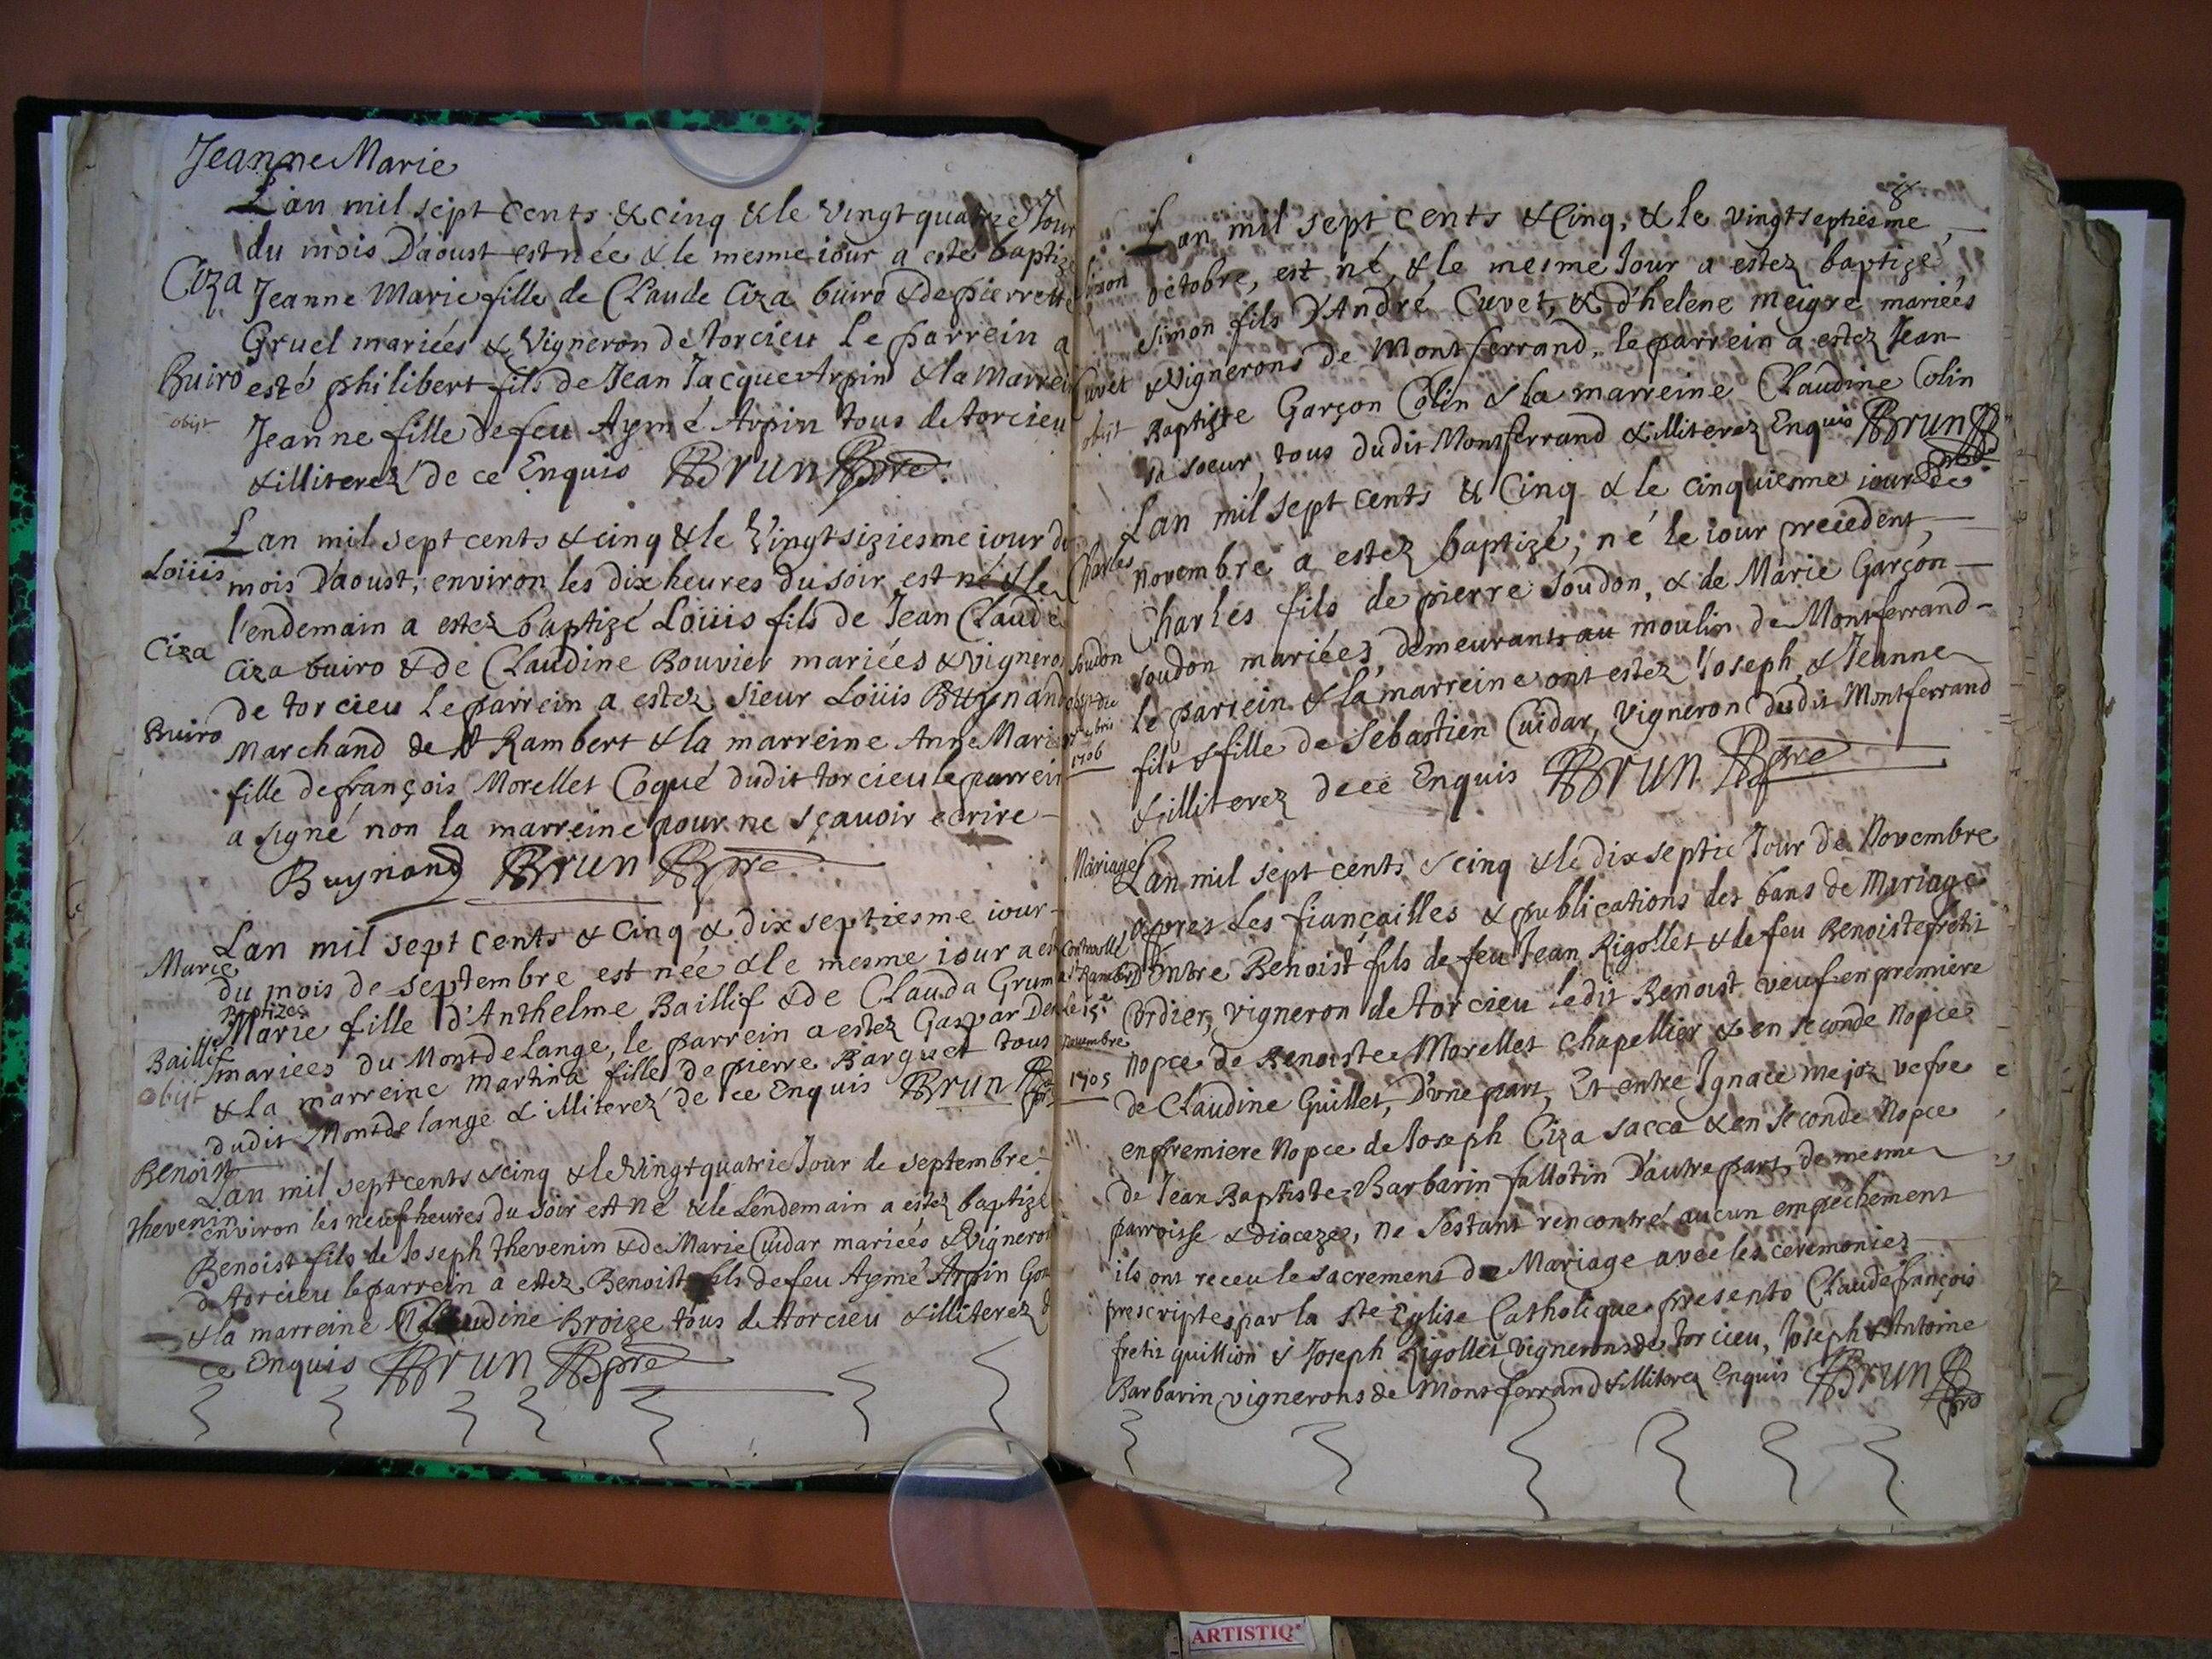 Jeanne Marie
Lan mil sept Cents & cinq & le Vingt quatrie Jour
du mois D'aoust est née & le mesme iour a esté baptizé
Ciza
Jeanne Marie fille de Claude Ciza buiro & de pierrette
Gruel mariées & Vigneron de torcieu le parrein a
Buiro
esté philibert fils de Jean Jacque Arpin & la Marrein
obijt
Jeanne fille de feu Aymé Arpin tous de torcieu
& illiterez de ce Enquis Brun pre
Lan mil sept cents & cinq & le Vingt siziesme iour du
Loüis
mois D'aoust, environ les dix heures du soir est né & le
l'endemain a estez baptizé Loüis fils de Jean Claude
Ciza
Ciza buiro & de Claudine Bouvier mariées & vigneron
de torcieu le parrein a estez sieur Loüis Buynand
Buiro
Marchand de St Rambert & la marreine Anne Marie
fille de françois Morellet Coqué dudit torcieu le parrein
a signé non la marreine pour ne sçavoir ecrire
Buynand Brun pre
Lan mil sept cents & Cinq & dix septiesme iour
Marie
du mois de septembre est née & le mesme iour a es
Baptizee
Marie fille d'Anthelme Baillif & de Clauda Grum
Baillif
mariées du Montdelange, le parrein a estez Gaspar Den
obijt
& la marreine martina fille de pierre Barquet tous
dudit Montdelange & illiterez de ce Enquis Brun pre
Benoist
Lan mil sept cents & cinq & le Vingt quatrie Jour de septembre
thevenin
environ les neuf heures du soir est né & le Lendemain a estez baptizé
Benoist fils de Joseph thevenin & de Marie Cuidar mariées & Vigneron
de torcieu le parrein a estez Benoist fils de feu Aymé Arpin
& la marreine Claudine Broize tous de torcieu & illiterez d
ce Enquis Brun pre
8
Lan mil sept cents & Cinq, & le vingtseptiesme
simon
octobre, est né, & le mesme Jour a estez baptizé
simon fils D'André Cuvet, & d'helene meigre mariées
Cuvet
& Vignerons de Montferrand, le parrein a estez Jean
obijt
Baptiste Garçon Colin & la marreine Claudine Colin
sa soeur, tous dudit Montferrand & illiterez Enquis Brun
pre
Lan mil sept cents & Cinq & le cinquiesme iour de
Charles
novembre a estez baptizé, né le iour precedent
Charles fils de pierre soudon, & de Marie Garçon
Soudon
soudon mariées, demeurants au moulin de Montferrand
obijt die
le parrein & la marreine ont estez Joseph, & Jeanne
1706
fils & fille de Sebastien Cuidar, Vigneron dudit Montferrand
& illiterez de ce Enquis Brun pre
Mariage
Lan mil sept cents & cinq & le dix septie Jour de Novembre
apres Les fiançailles & publications des bans de Mariage
Controollé
a St Rambert
D'entre Benoist fils de feu Jean Rigollet & de feu Benoiste fretit
le 15e
Cordier, vigneron de torcieu ledit Benoist veuf en premiere
novembre
nopce de Benoiste Morellet chapellier & en seconde Nopce
1705
de Claudine Guillet, D'vne part, Et entre Ignace mejoz vefve
en premiere Nopce de Joseph Ciza sacca & en seconde Nopce
de Jean Baptiste Barbarin fallotin D'autre part de mesme
parroisse & dioceze, ne s'estant rencontré aucun empechement
ils ont receu le sacrement de Mariage avec les ceremonies
prescriptes par la ste Eglise Catholique presents Claude françois
fretit quillion & Joseph Rigollet vignerons de torcieu, Joseph & Antoine
Barbarin vignerons de Montferrand & illiterez Enquis Brun
pre
ARTISTIQ